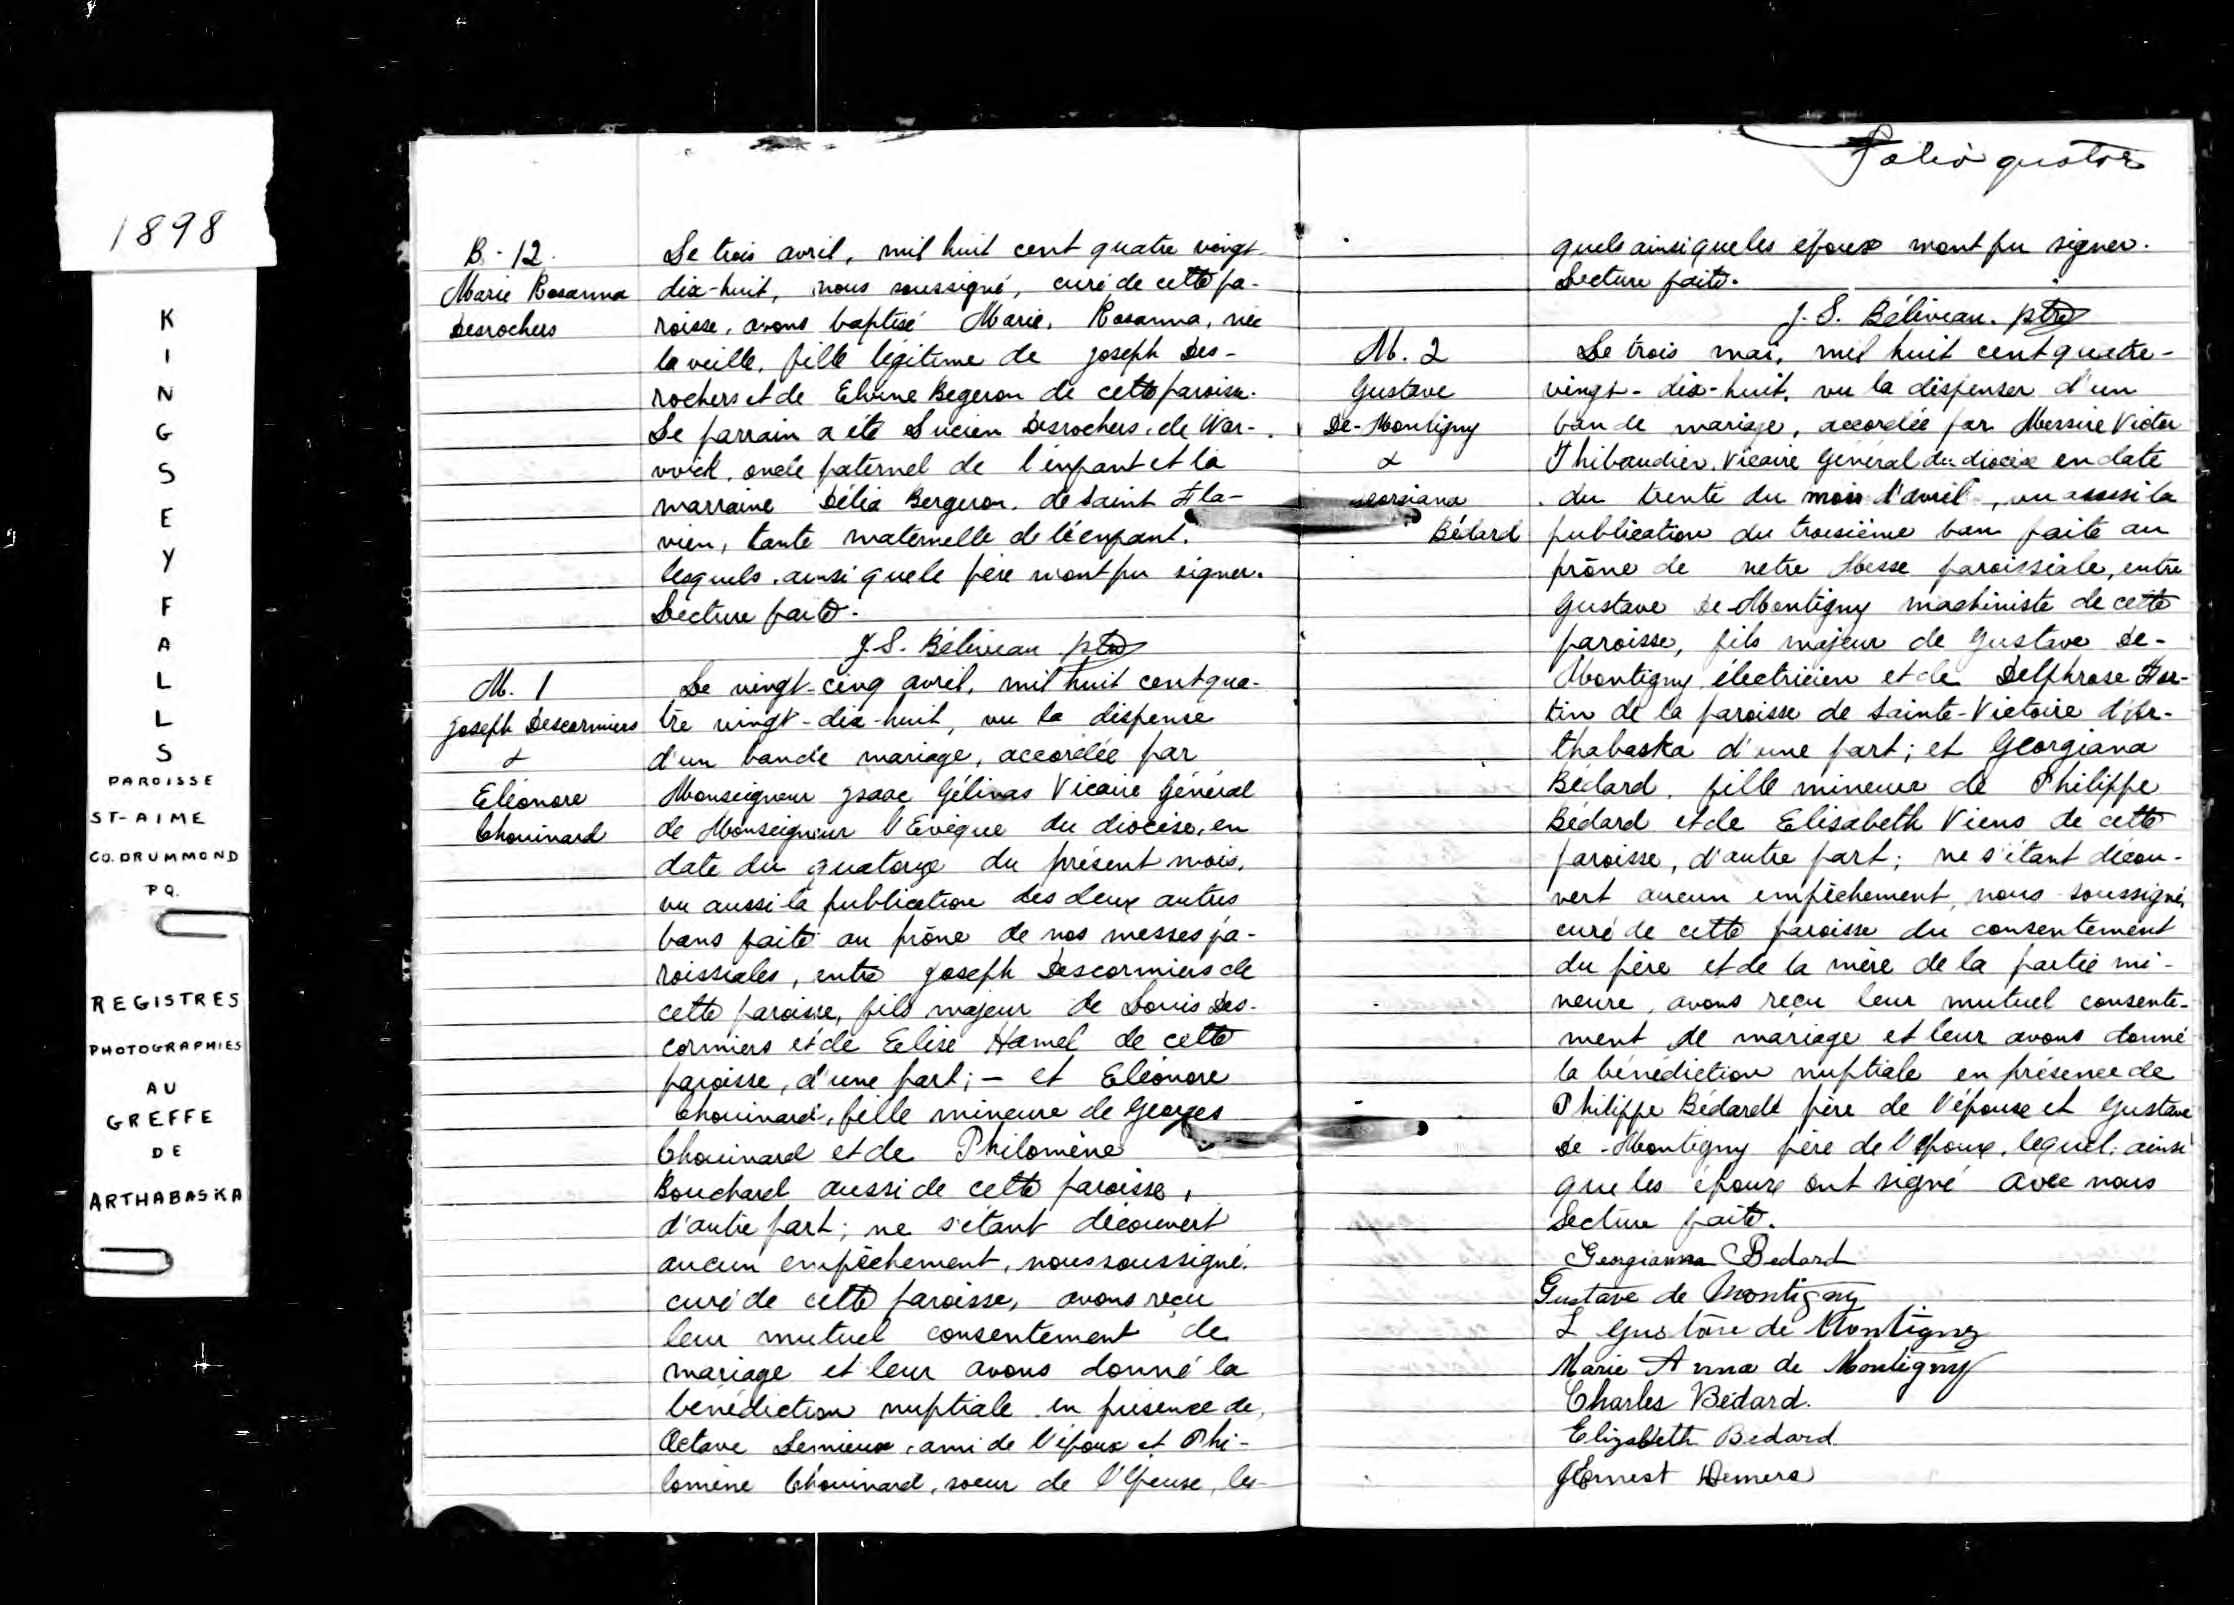 1898
KINGSEY FALLS
PAROISSE
ST-AIME
CO. DRUMMOND
P Q.
REGISTRES
PHOTOGRAPHIES
AU
GREFFE
DE
ARTHABASKA
B - 12.
Marie Rosanna
Desrochers
Le trois avril, mil huit cent quatre vingt
dix-huit, nous soussigné, curé de cette pa-
roisse, avons baptisé Marie, Rosanna, née
la veille, fille légitime de Joseph Des-
rochers et de Elvine Begeron de cette paroisse.
Le parrain a été Lucien Desrochers, de War-
wick, oncle paternel de l'enfant et la
marraine Délia Bergeron, de Saint Fla-
vien, tante maternelle de l'enfant.
lesquels, ainsi que le père n'ont pu signer.
Lecture faite.
J. S. Béliveau ptre
M. 1
Joseph Descormiers
&
Eléonore
Chouinard
Le vingt-cinq avril, mil huit cent qua-
tre vingt-dix-huit, vu la dispense
d'un ban de mariage, accordée par
Monseigneur Isaac Gélinas Vicaire Général
de Monseigneur l'Evêque du diocèse, en
date du quatorze du présent mois,
vu aussi la publication des deux autres
bans faite au prône de nos messes pa-
roissiales, entre Joseph Descormiers de
cette paroisse, fils majeur de Louis Des-
cormiers et de Eelise Hamel de cette
paroisse, d'une part; - et Eléonore
Chouinard, fille mineure de Georges
Chouinard et de Philomène
Bouchard aussi de cette paroisse,
d'autre part; ne s'étant découvert
aucun empêchement, nous soussigné,
curé de cette paroisse, avons reçu
leur mutuel consentement de
mariage et leur avons donné la
bénédiction nuptiale en présence de,
Octave Lemieux, ami de l'époux et Phi-
lomène Chouinard, soeur de l'épouse, les-
Folio quatre
quels ainsi que les époux n'ont pu signer.
Lecture faite.
J. S. Béliveau. ptre
M. 2
Gustave
De-Montigny
&
Georgiana
Bédard
Le trois mai, mil huit cent quatre-
vingt-dix-huit, vu la dispenser d'un
ban de mariage, accordée par Messire Victor
Thibaudier, Vicaire Général du diocèse en date
du trente du mois d'avril, vu aussi la
publication du troisième ban faite au
prône de notre Messe paroissiale, entre
Gustave De-Montigny machiniste de cette
paroisse, fils majeur de Gustave De-
Montigny électricien et de Delphrose For-
tin de la paroisse de Sainte-Victoire d'Ar-
thabaska d'une part; et Georgiana
Bédard, fille mineure de Philippe
Bédard et de Elisabeth Viens de cette
paroisse, d'autre part; ne s'étant décou-
vert aucun empêchement, nous soussigné,
curé de cette paroisse du consentement
du père et de la mère de la partie mi-
neure, avons reçu leur mutuel consente-
ment de mariage et leur avons donné
la bénédiction nuptiale en présence de
Philippe Bédard père de l'épouse et Gustave
De-Montigny père de l'époux, lequel, ainsi
que les époux ont signé avec nous
Lecture faite.
Georgianna Bedard
Gustave de Montigny
L Gustave de Montigny
Marie Anna de Montigny
Charles Bédard.
Elizabeth Bedard
JErnest Demers